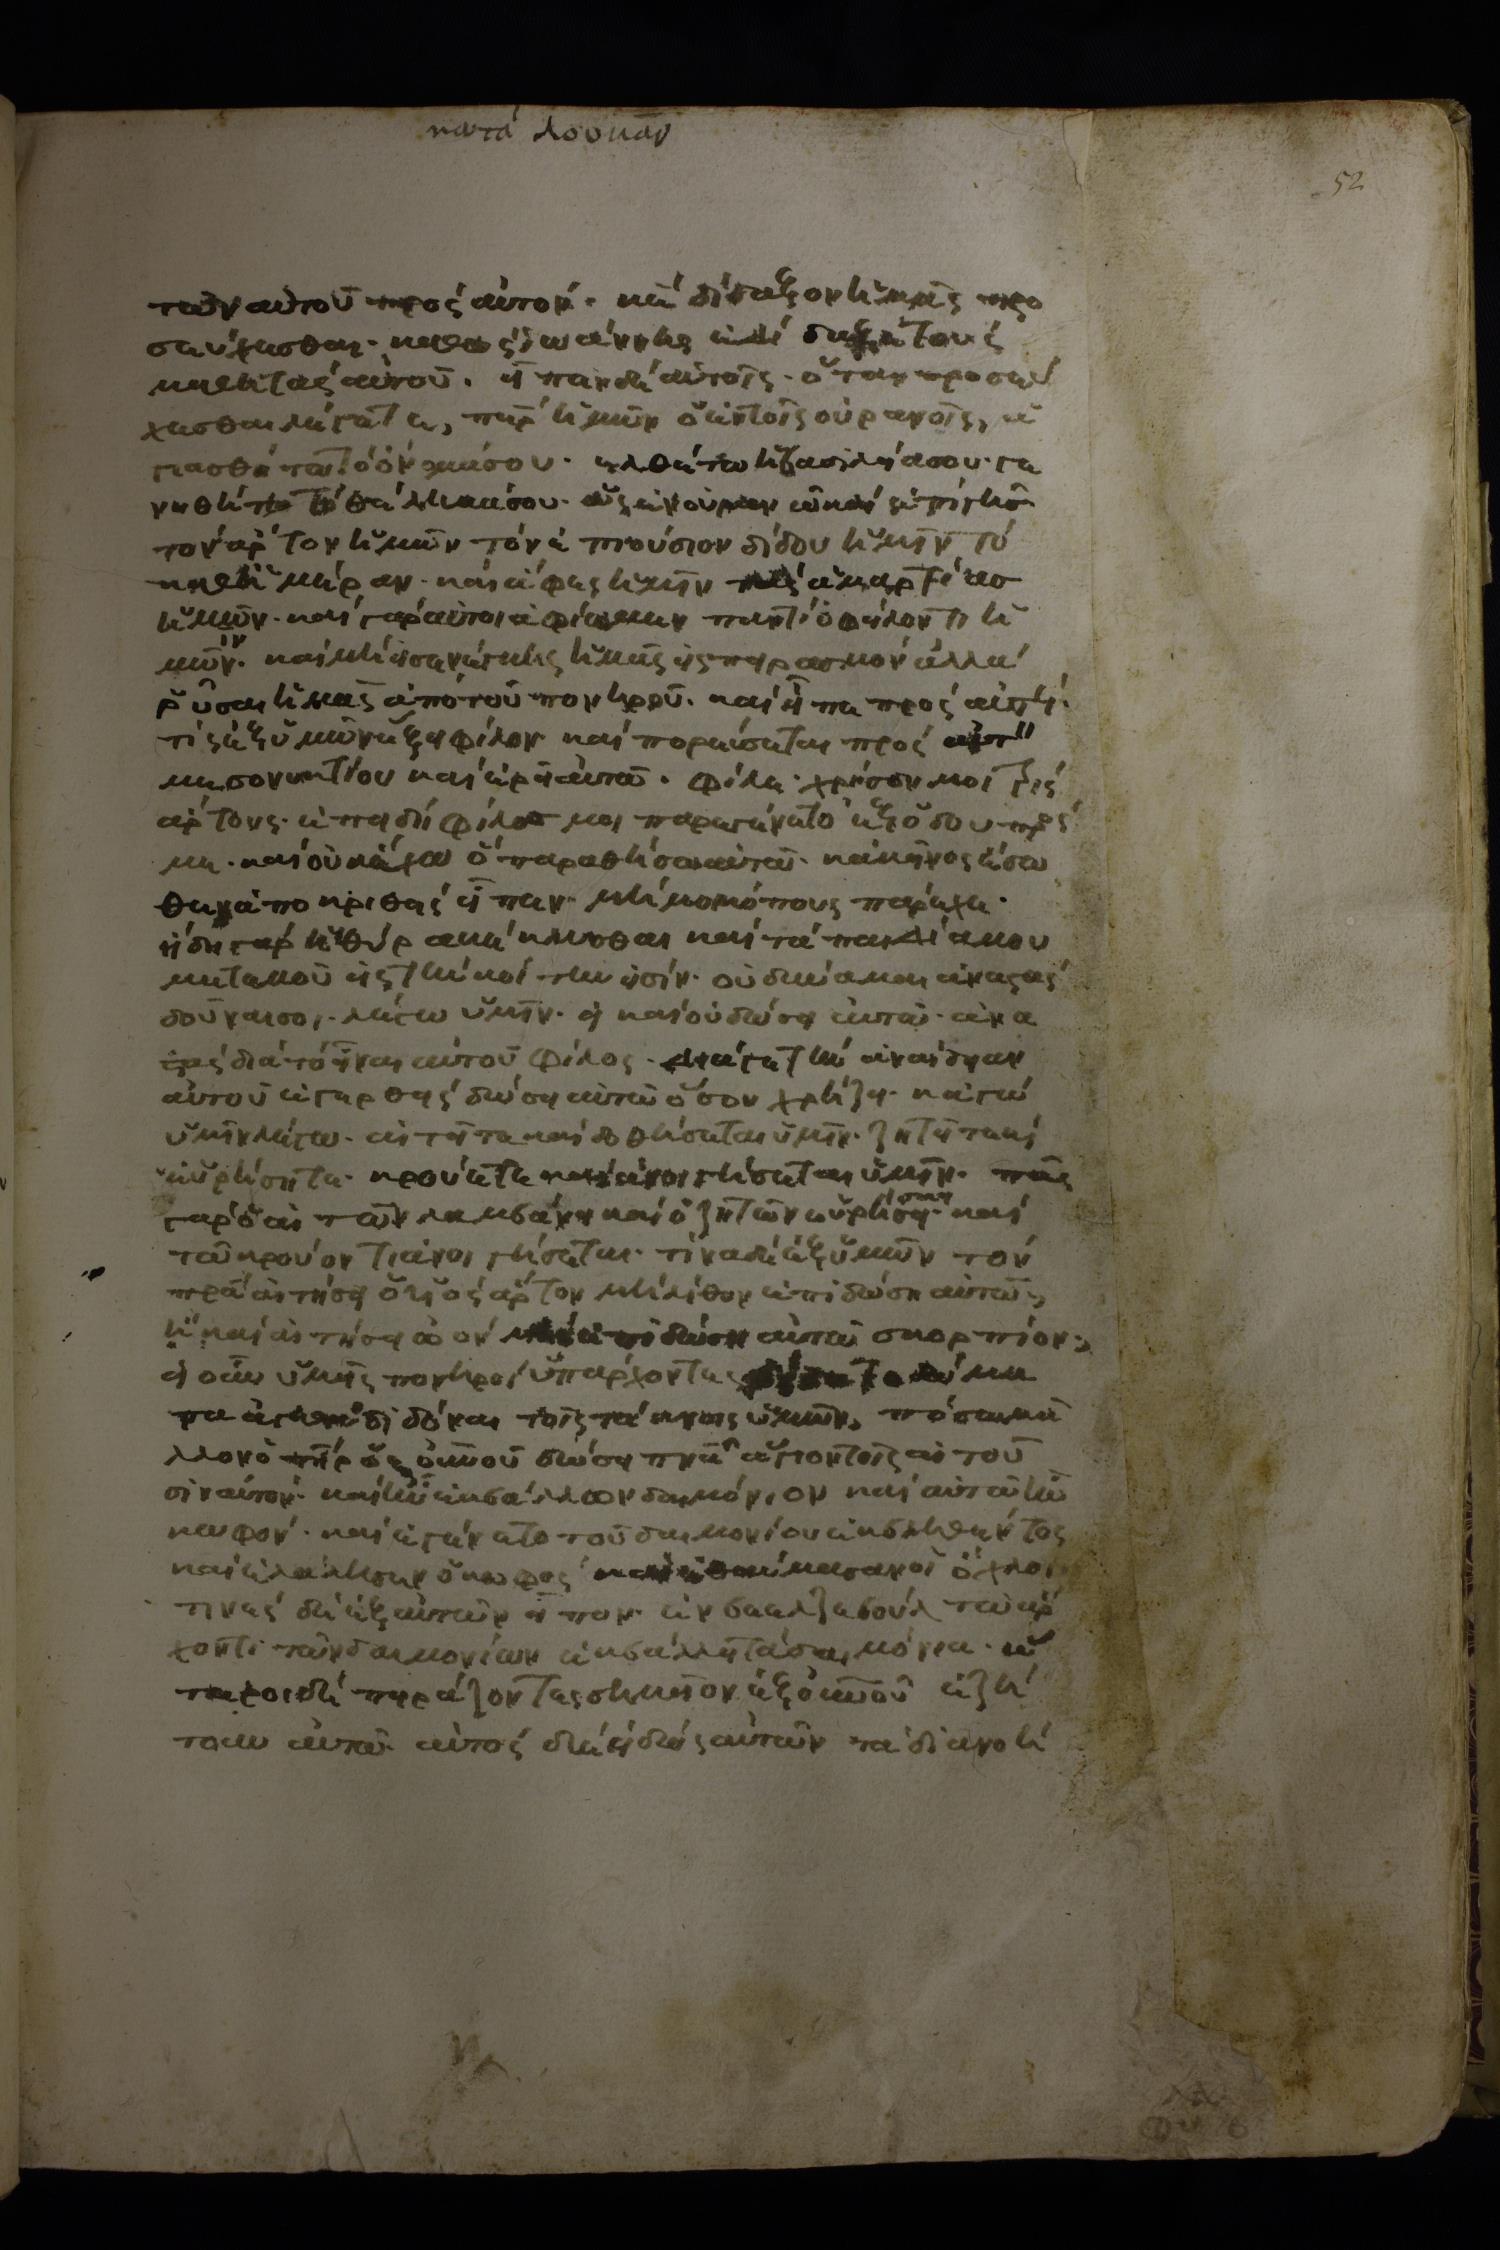 κατὰ λουκᾶν
52
τῶν αὐτοῦ πρὸς αὐτόν· κε δίδαξον ἡμᾶς προ
σεύχεσθαι· καθὼς ἰωάννης ἐδίδαξε τοὺς
μαθητὰς αὐτοῦ. εἶπεν δὲ αὐτοῖς· ὅταν προσεύ
χεσθαι λέγετε, περ ἡμῶν ὁ ἐν τοῖς οὐρανοῖς, ἁ
γιασθήτω τὸ ὄνομά σου· ἐλθέτω ἡ βασιλεία σου· γε
νηθήτω τὸ θέλημά σου· ὡς ἐν οὐρανῶ καὶ ἐπὶ γῆσ
τὸν ἄρτον ἡμῶν τὸν ἐπιούσιον δίδου ἡμῖν τὸ
καθημέραν· καὶ ἄφες ἡμῖν τὰς ἁμαρτίας
ἡμῶν· καὶ γὰρ αὐτοὶ ἀφίεμεν παντὶ ὀφείλοντι ἡ
μῖν· καὶ μὴ εἰσενέγκης ἡμᾶς εἰς πειρασμὸν ἀλλὰ
ῥῦσαι ἡμᾶς ἀπὸ τοῦ πονηροῦ. καὶ εἶπε πρὸς αὐτούς·
τίς ἐξ ὑμῶν ἕξει φίλον καὶ πορεύσεται πρὸς αὐτὸν
μεσονυκτίου καὶ εἴπη αὐτῶ. φίλε· χρῆσόν μοι τρεῖς
ἄρτους· ἐπειδὴ φίλος μοι παρεγένετο ἐξ ὁδοῦ πρός
με· καὶ οὐκ ἔχω ὃ παραθήσω αὐτῶ· κἀκεῖνος ἔσω
θεν ἀποκριθεὶς εἴπεν· μή μοι κόπους πάρεχε·
ἤδη γὰρ ἡ θύρα κέκλεισθαι καὶ τὰ παιδία μου
μετ' ἐμοῦ εἰς τὴν κοίτην εἰσίν· οὐ δύναμαι ἀναστὰς
δοῦναι σοι· λέγω ὑμῖν· εἰ καὶ οὐ δώσει αὐτῶ· ἀνα
στὰς διὰ τὸ εἶναι αὐτοῦ φίλος· διά γε τὴν ἀναίδειαν
αὐτοῦ ἐγερθεὶς δώσει αὐτῶ ὅσον χρήζει· κἀγὼ
ὑμῖν λέγω· αἰτεῖτε καὶ δοθήσεται ὑμῖν· ζητεῖτε καὶ
εὑρήσητε· κρούετε καὶ ἀνοιγήσεται ὑμῖν· πᾶς
γὰρ ὁ αἰτῶν λαμβάνει καὶ ὁ ζητῶν εὑρήσει· καὶ
τῶ κρούοντι ἀνοιγήσεται· τίνα δὲ ἐξ ὑμῶν τὸν
πρα αἰτήσει ὁ υἱὸς ἄρτον μὴ λίθον ἐπιδώση αὐτῶ,
ἢ καὶ αἰτήση ὠὸν μὴ ἐπιδώση αὐτῶ σκορπίον;
εἰ οὖν ὑμεῖς πονηροὶ ὑπάρχοντες
ἀγαθὰ διδόναι τοῖς τέκνοις ὑμῶν, πόσω μᾶ
λλον ὁ πηρ ὁ ἐξ οὐνοῦ δώσει πνα ἅγιον τοῖς αἰτοῦ
σιν αὐτόν· καὶ ἦν ἐκβάλλων δαιμόνιον καὶ αὐτὸ ἦν
κωφόν· καὶ ἐγένετο τοῦ δαιμονίου ἐκβληθέντος
καὶ ἐλάλησεν ὁ κωφὸς καὶ ἐθαύμασαν οἱ ὄχλοι
τινὲς δὲ ἐξ αὐτῶν εἶπον· ἐν βεελζεβοὺλ τῶ ἄρ
χοντι τῶν δαιμονίων ἐκβάλλει τὰ δαιμόνια· ἕ
τεροι δὲ πειράζοντες σημεῖον ἐξ οὐνοῦ ἐζή
τουν αὐτῶ· αὐτὸς δὲ εἰδὼς αὐτῶν τὰ διανοή